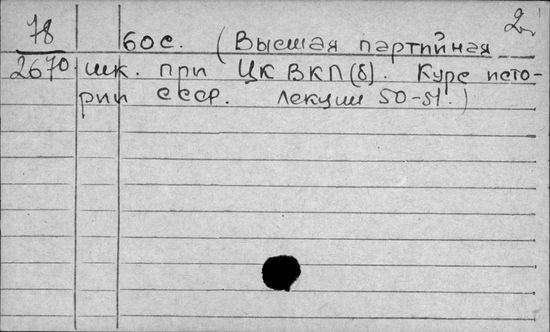 2
78 60 с. (Высшая партийная
2670 шк. при ЦК ВКП(б). Курс исто-
рии СССР. Лекции 50-51.)